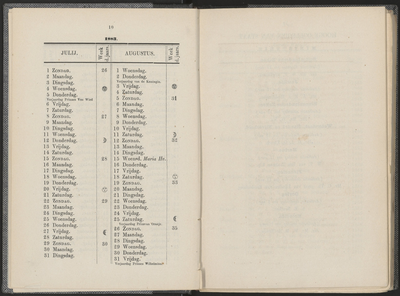 18
JULIJ.
Week d. jaars.
1 Zondag. 26
2 Maandag.
3 Dingsdag.
4 Woensdag.
5 Donderdag.
6 Vrijdag.
7 Zaturdag.
8 Zondag. 27
9 Maandag.
10 Dingsdag.
11 Woensdag.
12 Donderdag.
13 Vrijdag.
14 Zaturdag.
15 Zondag.
16 Maandag.
17 Dingsdag.
18 Woensdag.
19 Donderdag.
20 Vrijdag.
21 Zaturdag.
22 Zondag. 29
23 Maandag.
24 Dingsdag.
25 Woensdag.
26 Donderdag.
27 Vrijdag.
28 Zaturdag.
29 Zondag. 30
30 Maandag.
31 Dingsdag.
AUGUSTUS.
Week d. jaars.
1 Woensdag.
2 Donderdag.
3 Vrijdag.
4 Zaturdag.
5 Zondag. 31
6 Maandag.
7 Dingsdag.
8 Woensdag.
9 Donderdag.
10 Vrijdag.
11 Zaturdag.
12 Zondag.
13 Maandag.
14 Dingsdag.
15 Woensd. Maria Hv.
16 Donderdag.
17 Vrijdag.
18 Zaturdag.
19 Zondag. 33
20 Maandag.
21 Dingsdag.
22 Woensdag.
23 Donderdag.
24 Vrijdag.
25 Zaturdag.
26 Zondag.
27 Maandag.
28 Dingsdag.
29 Woensdag.
30 Donderdag.
31 Vrijdag.